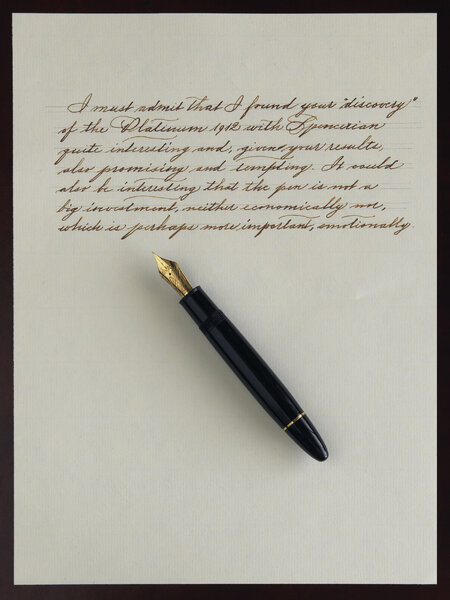 I must admit that I found your "discovery"
of the Platinum 1912 with Spencerian
quite interesting and, given your results,
also promising and tempting. It could
also be interesting that the pen is not a
big investment, neither economically nor,
which is perhaps more important, emotionally.